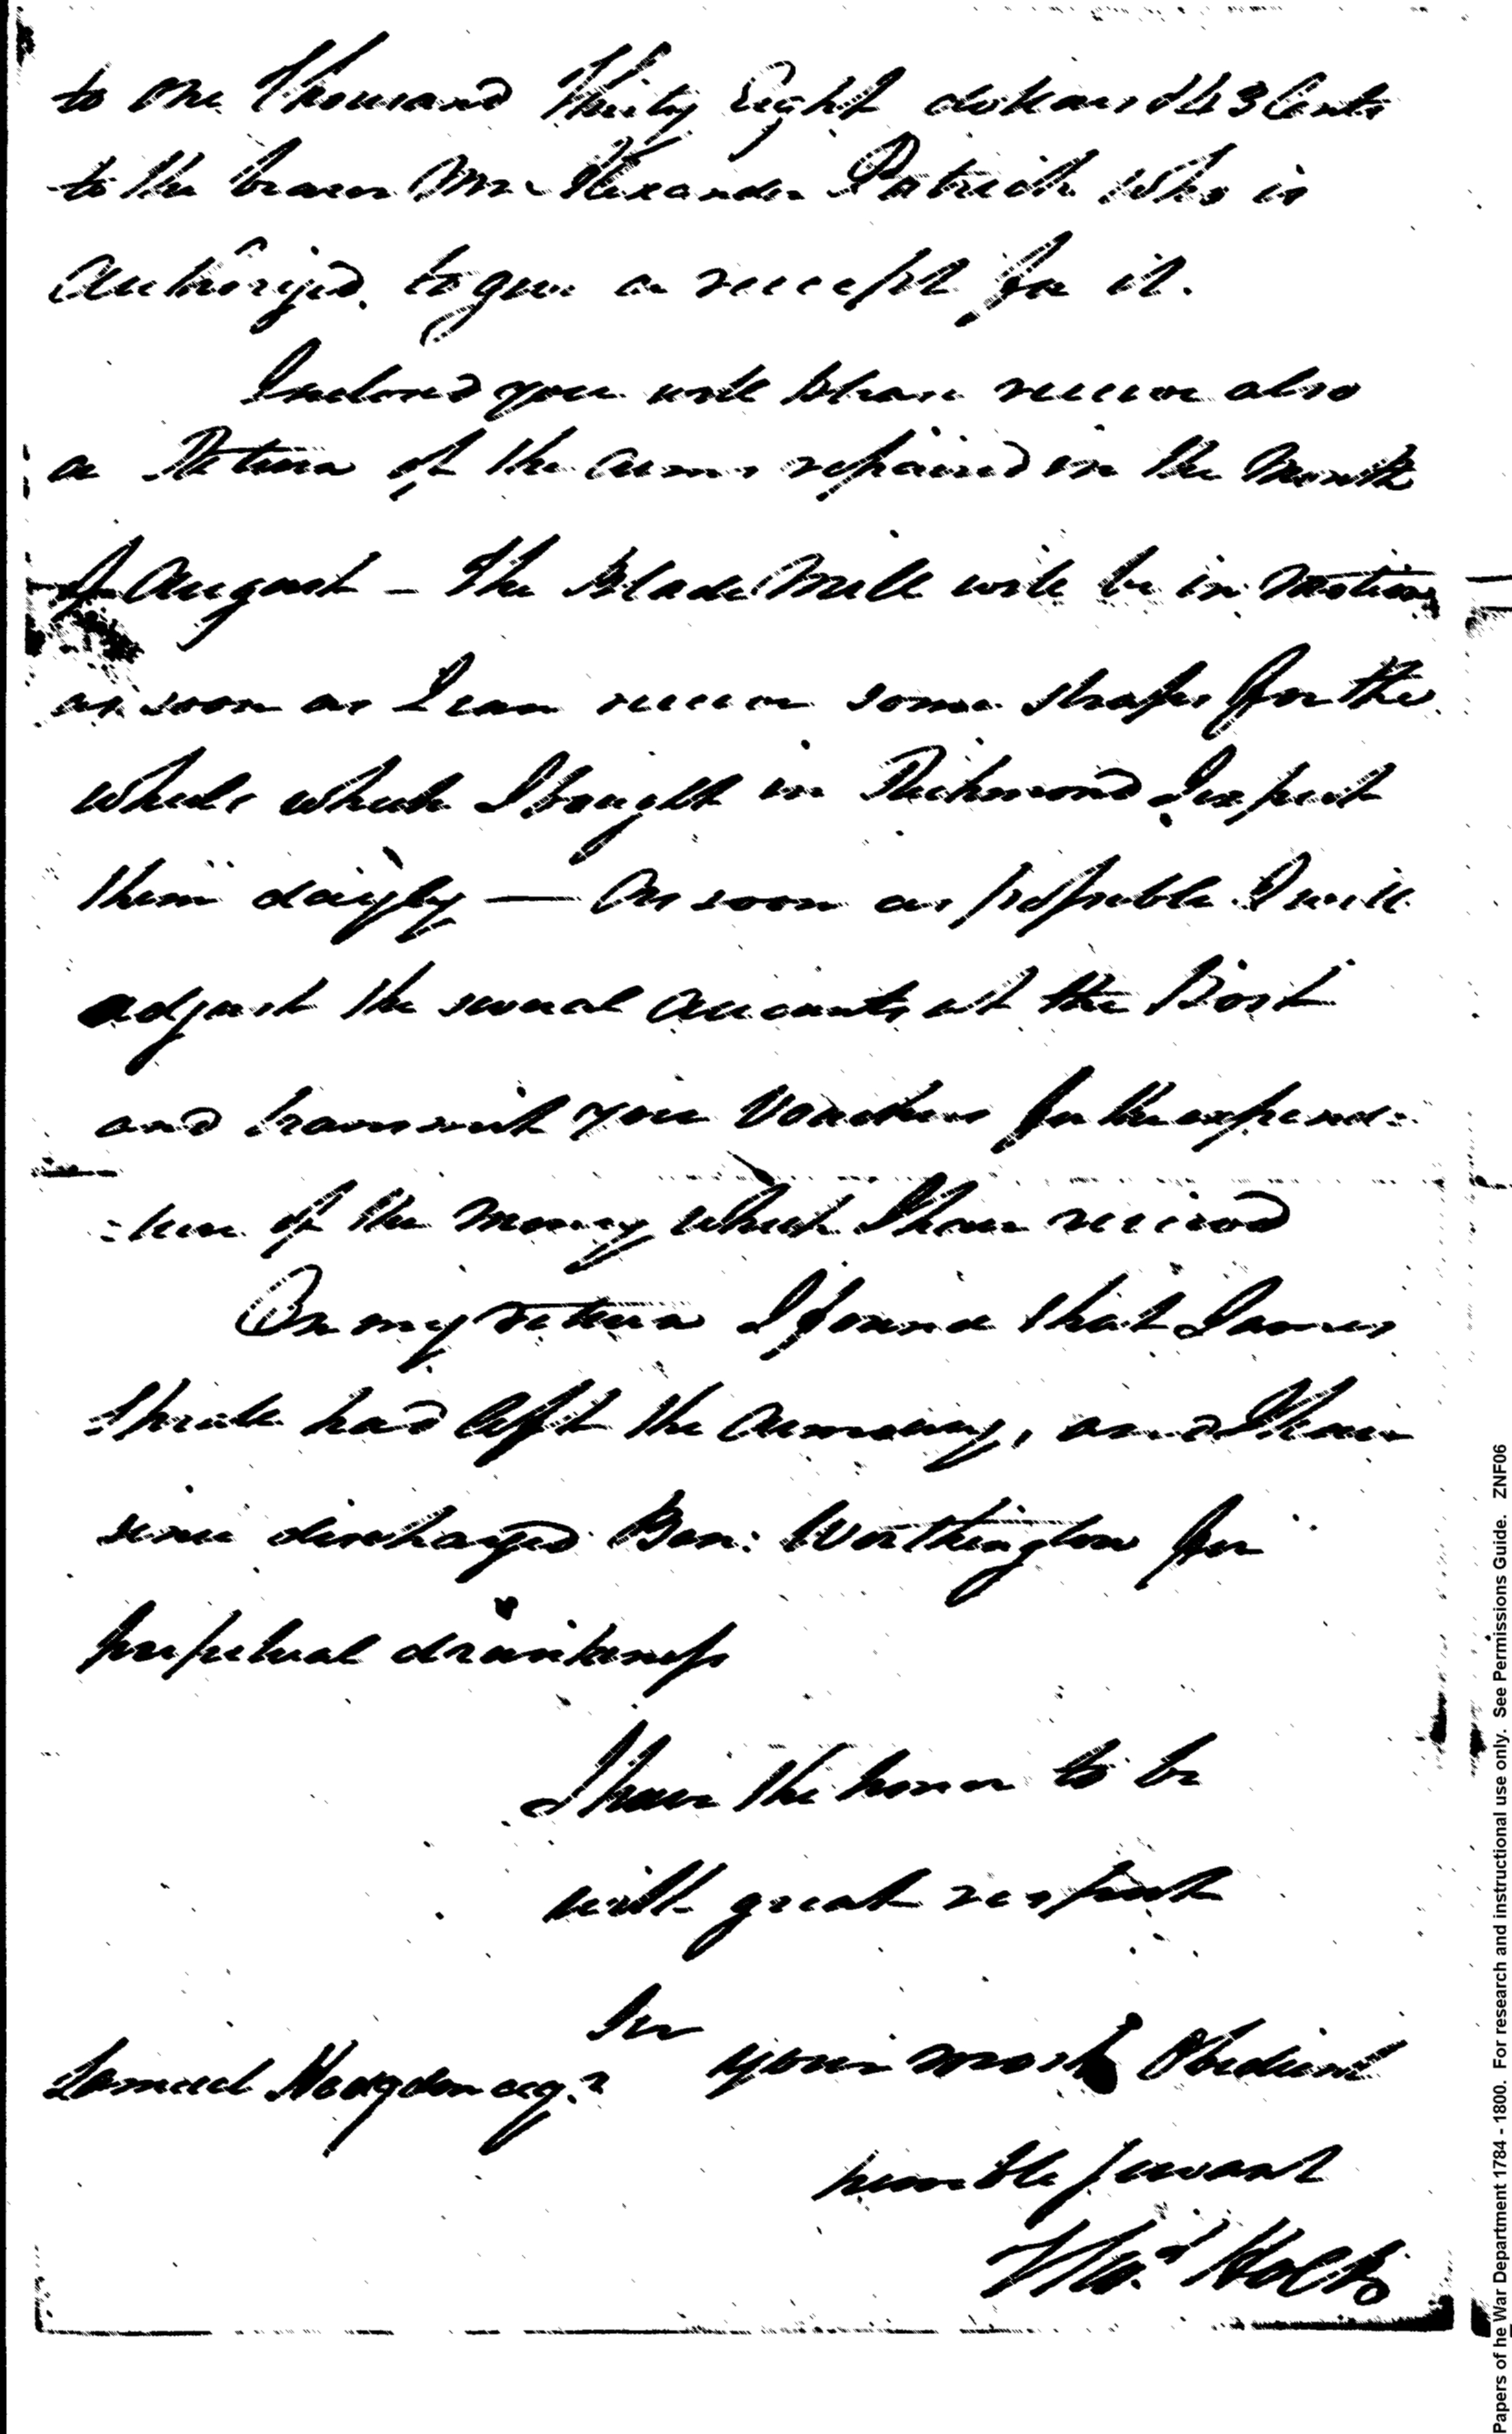 to One Thousand Thirty Eight dollars & 43 Cents
to the bearer Mr. Alexander Patrick who is
authorized to give a receipt for it.
Inclosed you will please receive also
a Return of the arms repaired in the Month
of August – The Blade Mill will be in motion
as soon as I can receive some straps for the
wheels which I bought in Richmond I expect
them dayly — As soon as possible I will
adjust the several accounts at the Post
and transmit you Vouchers for the expendi:
:ture of the Money which I have received
On my return I found that James
had left the Armoury, and I have
since discharged Ben: Worthington for
perpetual drunkenness
I have the honor to be
with great respect
Sir
your most Obedient
Samuel Hodgdon esq.r
humble Servant
Holt
Papers of he War Department 1784 - 1800. For research and instructional use only. See Permissions Guide. ZNF06